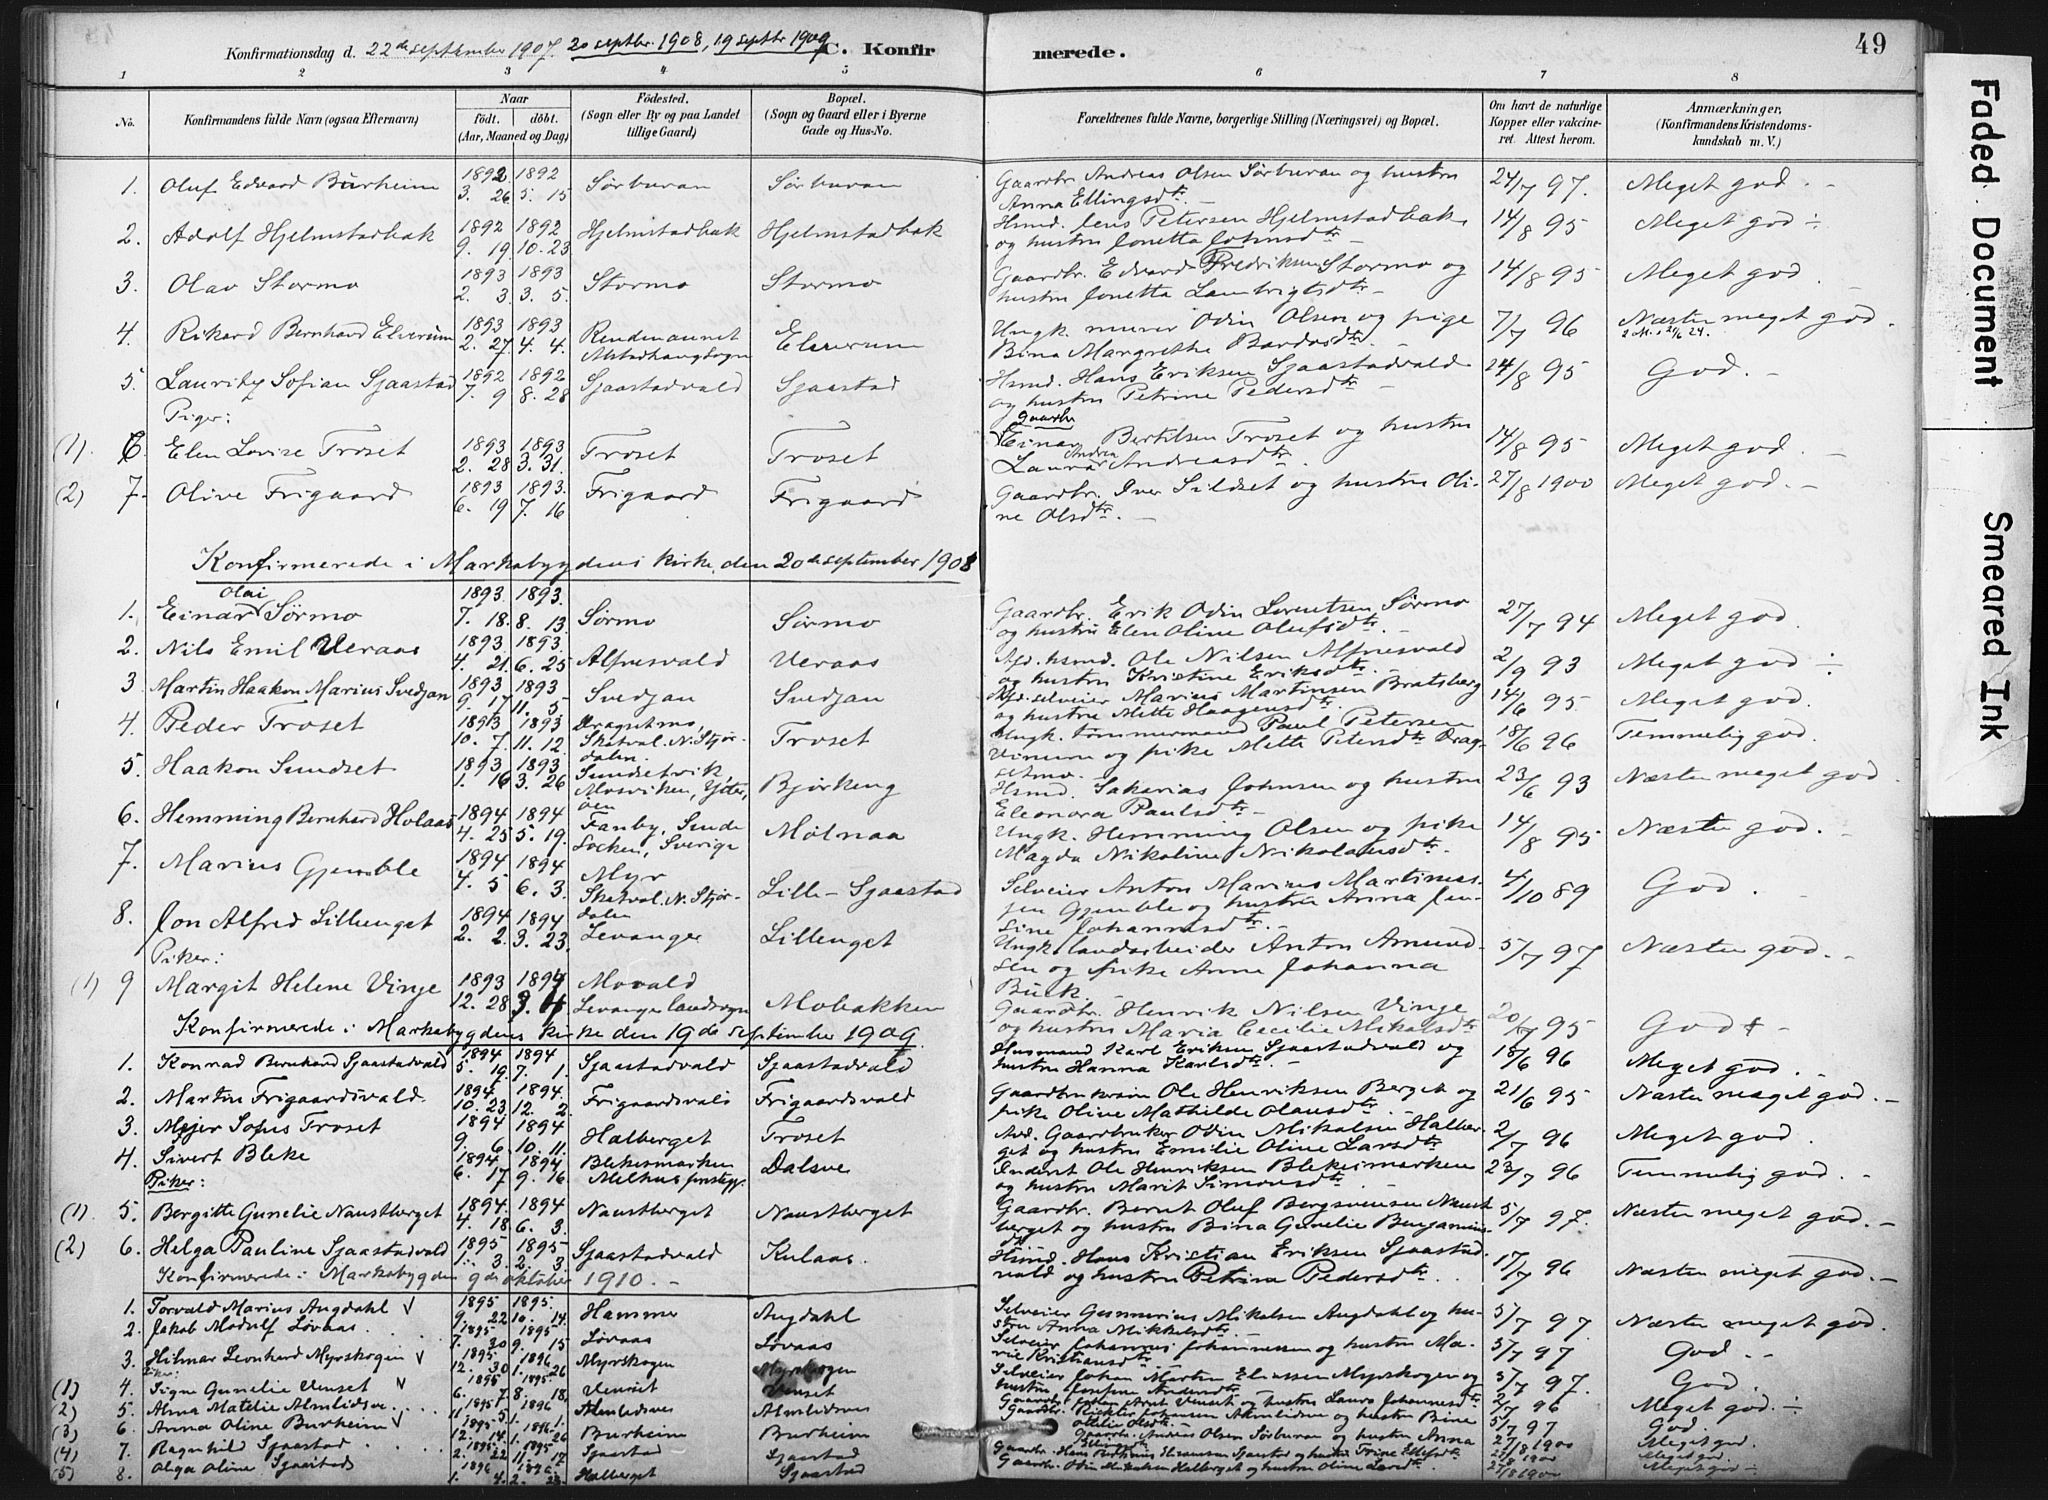 Konfirmationsdag d. 22de september 1907. 20 septbr. 1908, 19 septbr 1909 C. Konfirmerede. 49
1 2 3 4 5 6 7 8
No. Konfirmandens fulde Navn (ogsaa Efternavn) Naar født. døbt. (Aar, Maaned og Dag) Fødested. (Sogn eller By og paa Landet tillige Gaard) Bopæl. (Sogn og Gaard eller i Byerne Gade og Hus-No. Forældrenes fulde Navne, borgerlige Stilling (Næringsvei) og Bopæl. Om havt de naturlige Kopper eller vakcineret. Attest herom. Anmærkninger. (Konfirmandens Kristendomskundskab m. V.)
1. Oluf Edvard Burheim 1892 3. 26 1892 5. 15 Sørburan Sørburan Gaardbr. Andreas Olsen Sørburan og hustru Anna Ellingsdtr. 24/7 97. Meget god.
2. Adolf Hjelmstadbak 1892 9. 19 1892 10. 23 Hjelmstadbak Hjelmstadbak Hsmd. Jens Petersen Hjelmstadbak og hustru Jonetta Johnsdtr 14/8 95 Meget god
3. Olav Stormo 1893 2. 3 1893 3. 5. Stormo Stormo Gaardbr. Edvard Fredriksen Stormo og hustru Jonetta Lambrigtsdtr 14/8 95 Meget god
4. Rikard Bernhard Elverum 1893 2. 27 1893 4. 4. Alstadhaug sogn Elverum Ungk. murer Odin Olsen og pige Bina Margrethe Bardosdtr. 7/7 96 Næsten meget god.
5. Lauritz Sofian Sjaastad 1892 7. 9 1892 8. 28 Sjaastadvald Sjaastad Hsmd. Hans Eriksen Sjaastadvald og hustru Petrine Pedersdtr 24/8 95 God.
Piger:
(1) 6. Elen Lovise Troset 1893 2. 28 1893 3. 31. Troset Troset gaardbr Einar Bertilsen Troset og hustru Laura Andrea Andreasdtr. 14/8 95 Meget god.
(2) 7. Olive Frigaard 1893 6. 19 1893. 7. 16 Frigaard Frigaard Gaardbr. Iver Sildset og hustru Oline Olsdtr. 27/8 1900 Meget god.
Konfirmerede i Markabygdens kirke, den 20de september 1908
1. Einar Olai Sørmo 1893 7. 18. 1893. 8. 13. Sørmo Sørmo Gaardbr. Erik Odin Lorentsen Sørmo og hustru Elen Oline Olufsdtr. 27/7 94 Meget god.
2. Nils Emil Veraas 1893 4. 21. 1893. 6. 25 Alfnesvald Veraas Afd. hsmd. Ole Nilsen Alfnesvald og hustru Kristine Eriksdtr. 2/9 93 Meget god
3 Martin Haakon Marius Svedjan 1893 9. 17 1893 11. 5 Svedjan Svedjan Afd. selveier Marius Martinsen Bratsberg og hustru Mette Haagensdtr. 14/6 95 Meget god.
4. Peder Troset 1893 10. 7. 1893 11. 12. Dragsetmo, Skatval. N. Stjørdalen. Troset Ungk. tømmermand Paul Petersen Vinum og pike Mette Petersdtr Dragsetmo. 18/6 96 Temmelig god.
5. Haakon Sundset 1893 1. 16 1893 3. 26 Sundsetvik Mosviken, Ytterøen Bjørkeng Hsmd. Sakarias Johnsen og hustru Eleonora Paulsdtr 23/6 93 Næsten meget god
6. Hemming Bernhard Holaas 1894 4. 25 1894 5. 19. Fanby, Sunde Socken, Sverige Molnaa Ungk. Hemming Olsen og pike Magda Nikoline Nikolausdtr. 14/8 95 Næsten god.
7. Marius Gjemble 1894 4. 5 1894 6. 3 Myr Skatval. N. Stjørdalen Lille-Sjaastad Selveier Anton Marius Martinessen Gjemble og hustru Anna Jensine Johannesdtr. 4/10 89 God.
8. Jon Alfred Lillenget 1894 2. 2. 1894 3. 23, Levanger Lillenget Ungk. landarbeider Anton Amundsen og pike Anne Johanna Buck. 5/7 97 Næsten god.
Piker:
(1) 9 Margit Helene Vinje 1893 12. 28 1894 3. 4 Movald Levanger landsogn Mobakken Gaardbr. Henrik Nilsen Vinge og hustru Maria Cecilie Mikalsdtr 20/7 95 God
Konfirmerede i Markabygdens kirke den 19de september 1909.
1. Konrad Bernhard Sjaastadvald 1894 5. 19. 1894 7. 1. Sjaastadvald Sjaastadvald Husmand Karl Eriksen Sjaastadvald og hustru Hanna Karlsdtr. 18/6 96 Meget god.
2. Martin Frigaardsvald. 1894 10. 23 1894 12. 2. Frigaardsvald Frigaardsvald Ole Henriksen Berget og pike Oline Mathilde Olausdtr. 21/6 95 Næsten meget god.
3. Mejer Sofus Troset 1894 9. 6. 1894 10. 11. Halberget Troset Gaardbruker Odin Mikalsen Halberget og hustru Emilie Oline Larsdtr 2/7 96 Meget god.
4. Sivert Bleke 1894 6. 17 1894. 9. 16 Blekesmarken Melhus prestegj. Dalsve Inderst Ole Henriksen Blekesmarken og hustru Marit Simonsdtr. 23/7 96 Temmelig god.
Piker:
(1) 5. Bergitte Gunelie Naustberget 1894. 4. 18 1894 6. 3. Naustberget Naustberget Gaardbr. Bernt Oluf Bergsvensen Naustberget og hustru Bina Gunelie Benjaminsdtr 5/7 97. Næsten meget god.
(2) 6. Helga Pauline Sjaastadvald 1895 1. 3. 1895 2. 3. Sjaastadvald Kulaas. Hsmd. Hans Kristian Eriksen Sjaastadvald og hustru Petrina Pedersdtr. 17/7 96 Næsten meget god.
Konfirmerede i Markabygden 9de oktober 1910.
1. Torvald Marius Augdahl 1895 9. 22 1895. 10. 14. Hammer Augdahl Selveier Gunnerius Mikalsen Augdahl og hustru Anna Mikkelsdtr. 5/7 97. Næsten meget god.
2. Jakob Modulf Lovaas 1895 7. 30 1895 9. 15 Lovaas Lovaas Selveier Johannes Johannessen og hustru Marie Kristiansdtr. 5/7 97 God
3. Hilmar Leonhard Myrskogen 1895 12. 30 1896 1. 26 Myrskogen Myrskogen Selveier Johan Martin Eliassen Myrskogen og hustru Josefine Andersdtr 5/7 97. God
Piker:
(1) 4. Signe Gunelie Venset 1895 6. 7. 1895 8. 18. Venset Venset Gaardbr. Johan Arnt Venset og hustru Laura Johannesdtr. 2/7 96 Meget god.
(2) 5. Alma Matilie Almlidsve 1895 11. 5 1896 1. 1. Almlidsve Almlidsve Gaardbr. Rikter Johansen Almlidsve og hustru Bine Otelie Olsdtr. 5/7 97 God.
(3) 6. Anna Oline Burheim 1895 12. 14. 1896 1. 26 Burheim Burheim Gaardbr. Andreas Olsen Sørburan og hustru Anna Ellingsdtr 27/8 1900 Meget god.
(4) 7. Ragnhild Sjaastad 1895 2. 22 1895 11. 17 Sjaastad Sjaastad Gaardbr. Hans Sjaastad og hustru Trine 27/8 1900 Meget god.
(5) 8. Olga Oline Sjaastad 1896 1. 4. 1896 2. 23. Halberget Sjaastad Gaardbr. Odin Mikalsen Halberget og hustru Oline Larsdtr 27/8 1900 Meget god
Faded Document
Smeared Ink